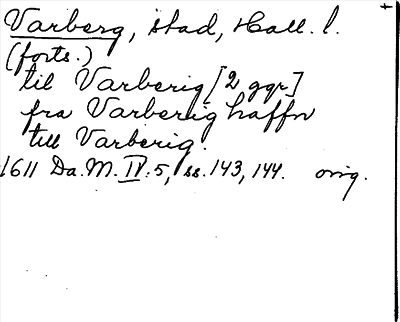 Varberg, stad, Hall. l.
(forts.)
til Varberig [2 ggr]
fra Varberig haffn
till Varberig.
1611 Da. M. IV: 5, ss. 143, 144. orig.